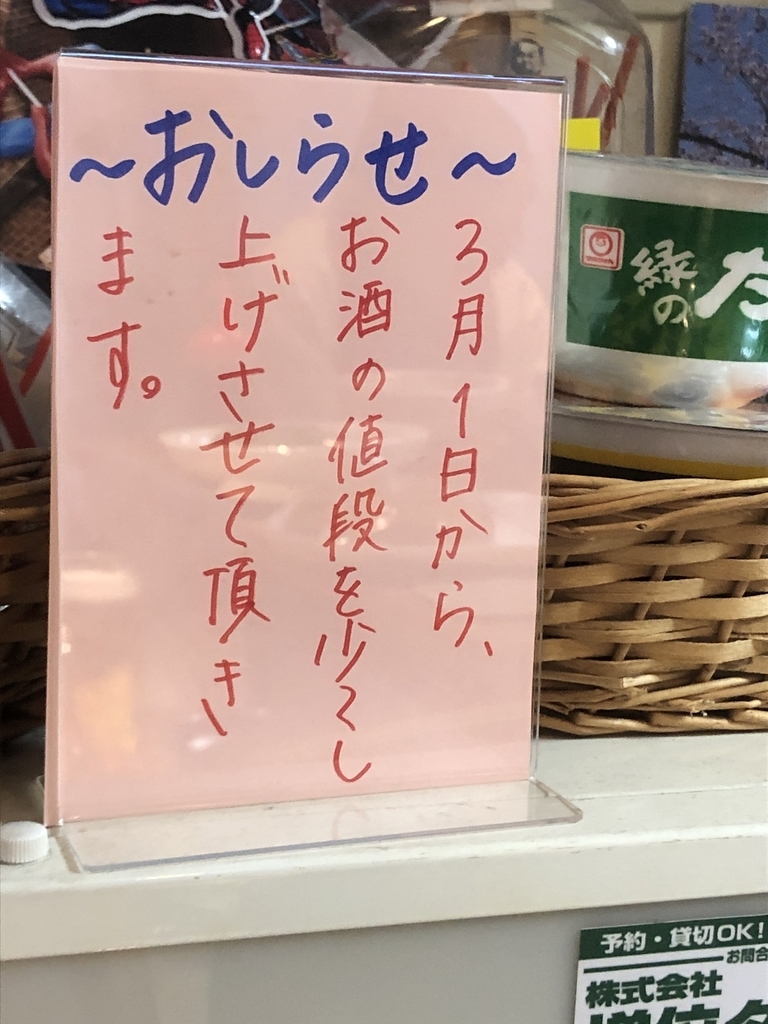 ～おしらせ～
3月1日から、
お酒の値段を少〻し
上げさせて頂き
ます。
緑の
予約・貸切OK!
お問合
株式会社